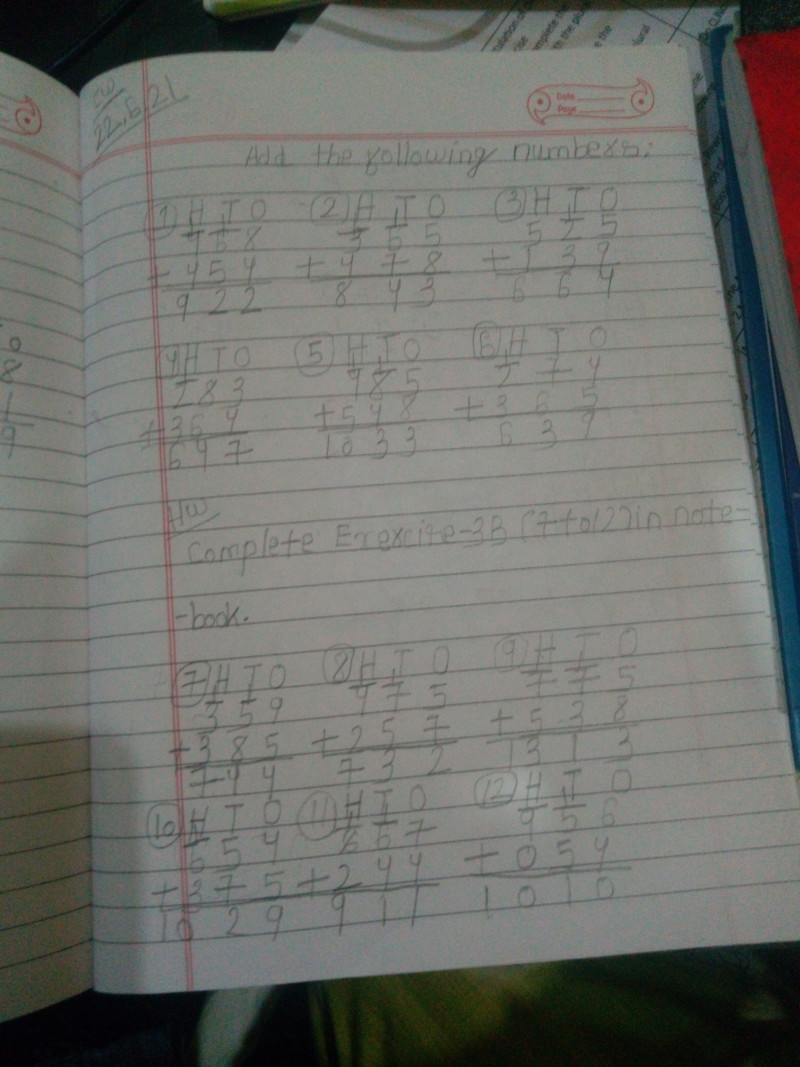 CW
22.6.21
Date
Page
Add the following numbers:
① H T O ② H T O ③ H T O
4 6 8 3 6 5 5 2 5
+ 4 5 4 + 4 7 8 + 1 3 9
9 2 2 8 4 3 6 6 4
④ H T O ⑤ H T O ⑥ H T O
2 8 3 4 8 5 2 7 4
+ 3 6 4 + 5 4 8 + 3 6 5
6 4 7 10 3 3 6 3 9
HW
Complete Exexcite-3B (7 to 12) in note-
-book.
⑦ H T O ⑧ H T O ⑨ H T O
3 5 9 4 7 5 7 7 5
+ 3 8 5 + 2 5 7 + 5 3 8
7 4 4 7 3 2 13 1 3
⑩ H T O ⑪ H T O ⑫ H T O
6 5 4 6 6 7 9 5 6
+ 3 7 5 + 2 4 4 + 0 5 4
10 2 9 9 1 1 1 0 1 0